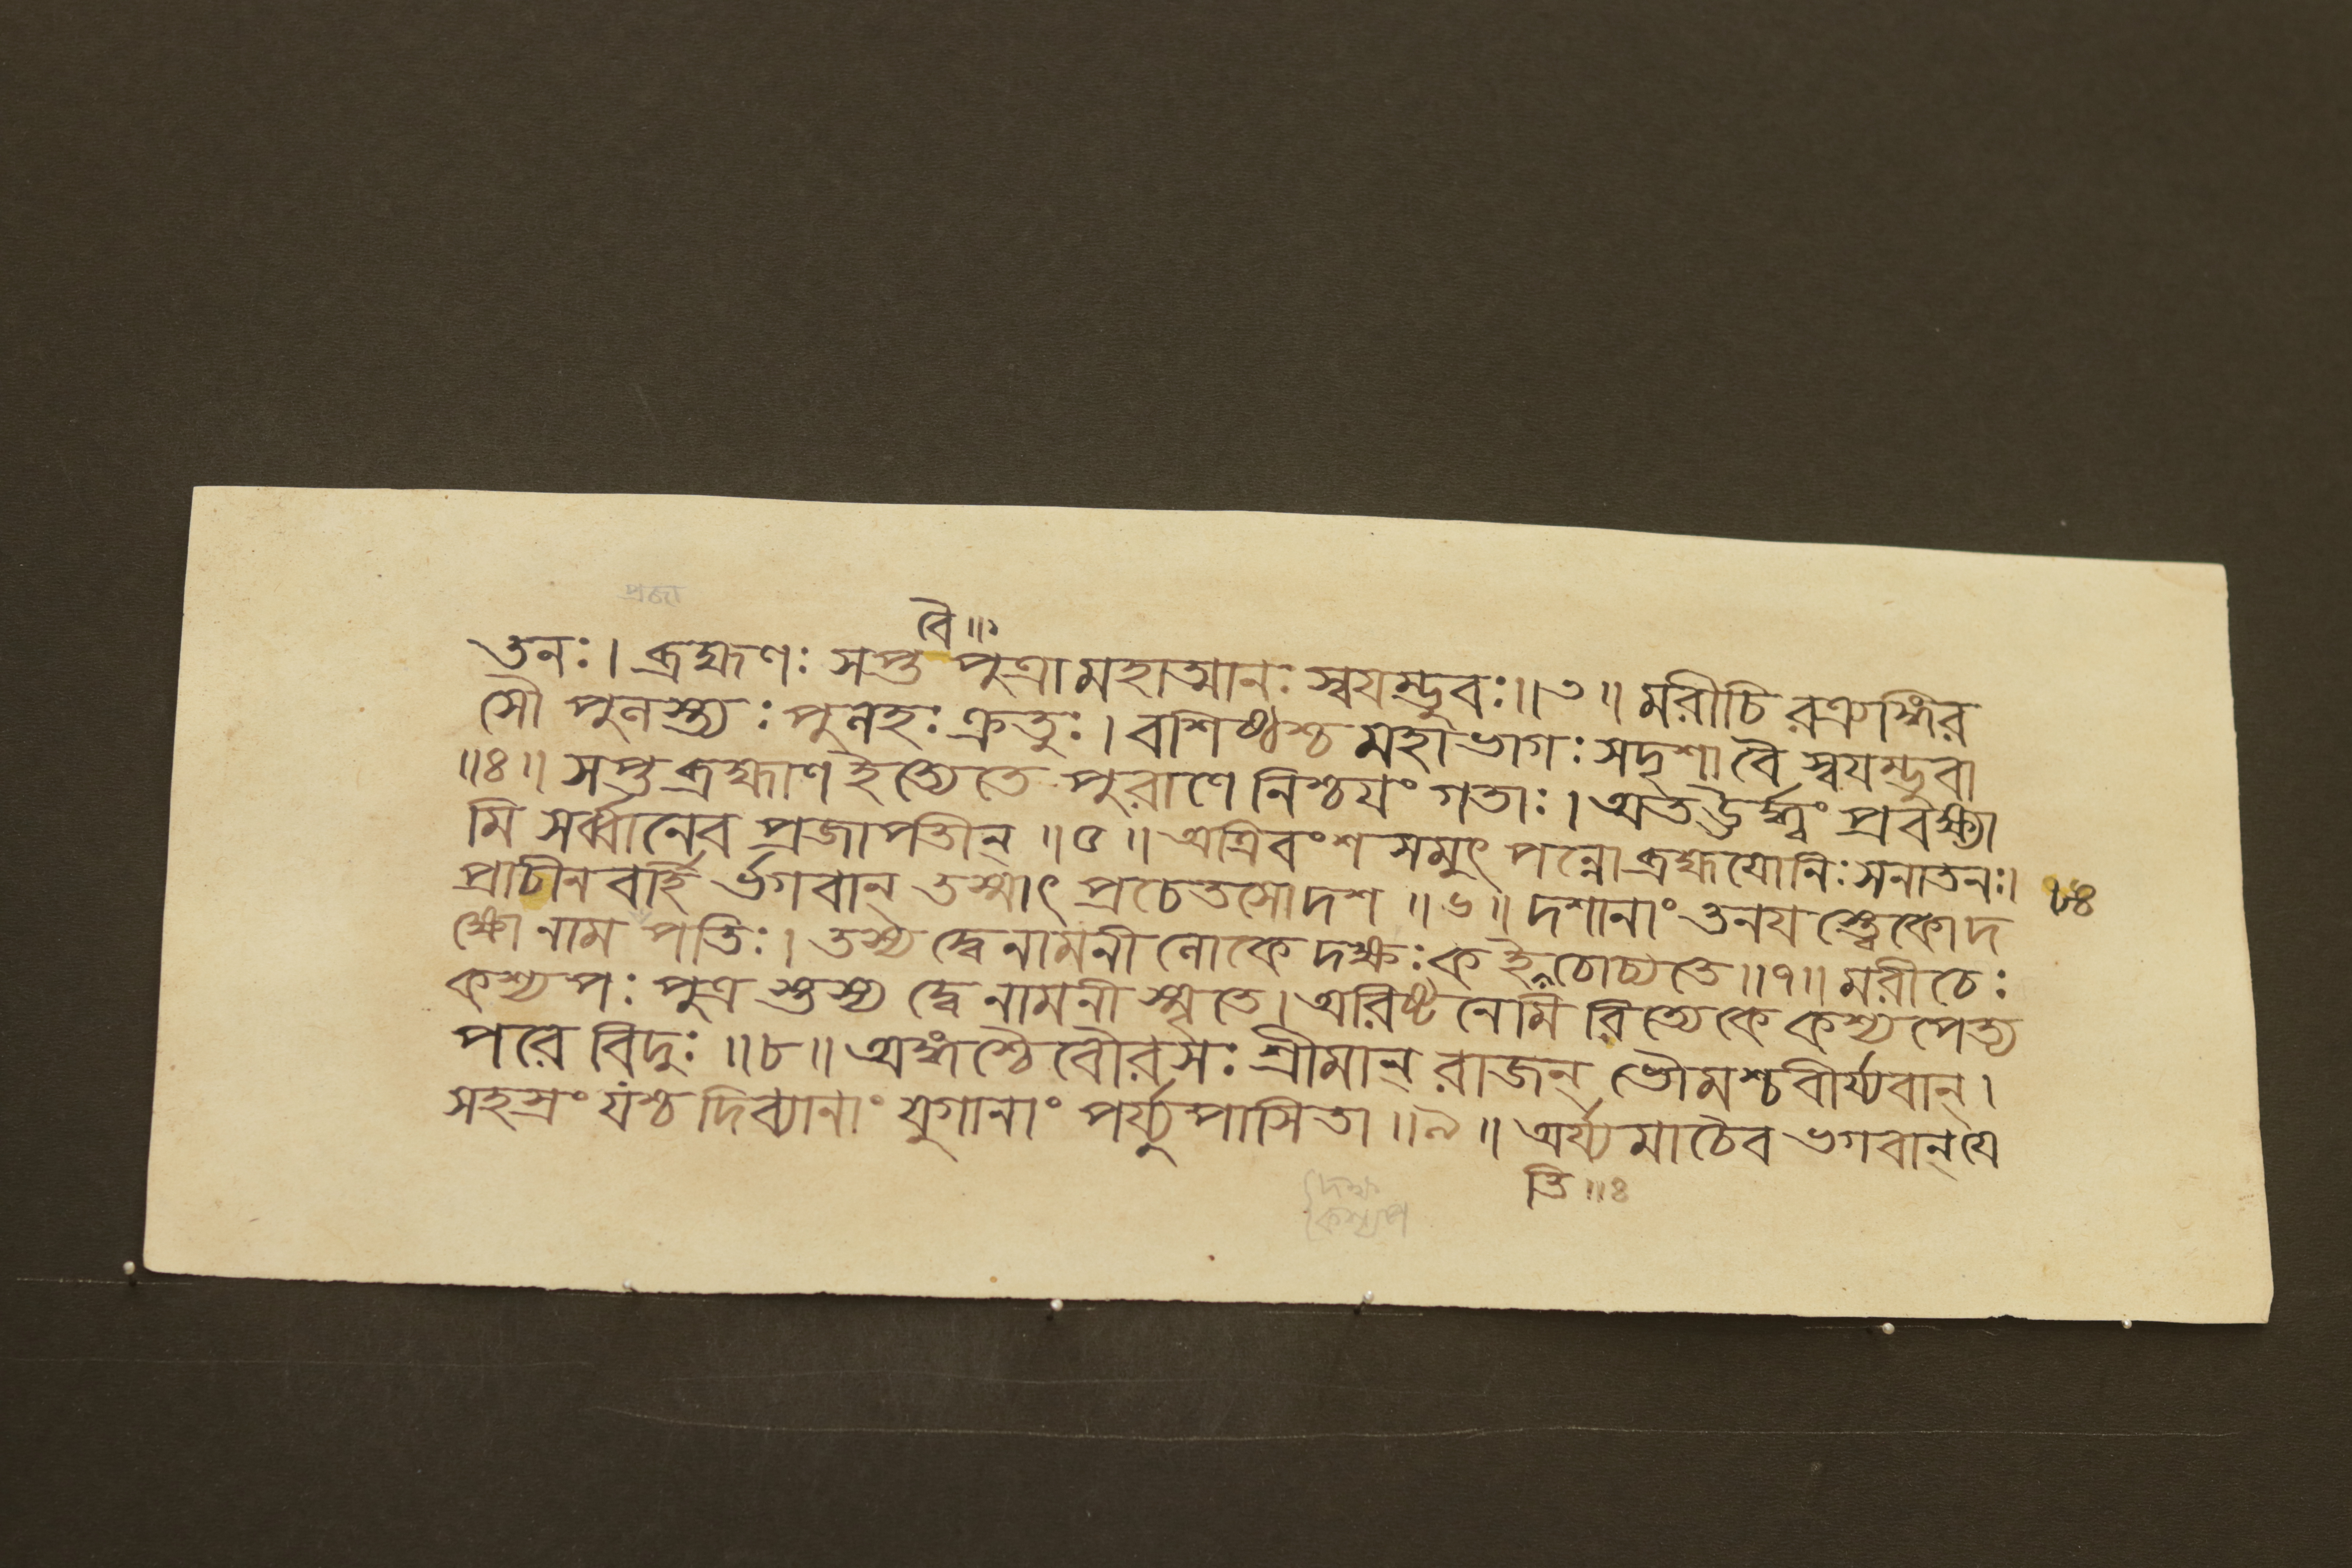 প্রজা
বৈ ॥১
তনঃ। ব্রহ্মণঃ সপ্ত পুত্রা মহাত্মানঃ স্বযম্ভুবঃ॥৩॥ মরীচি রত্র্যঙ্গির
সৌ পুলস্ত্যঃ পুলহঃ ক্রতুঃ। বশিষ্ঠশ্চ মহাভাগঃ সদৃশা বৈ স্বযম্ভুবা
॥৪॥ সপ্ত ব্রহ্মাণ ইত্যেতে পুরাণে নিশ্চযং গতাঃ। অতঊর্দ্ধ্বং প্রবক্ষ্যা
মি সর্ব্বানেব প্রজাপতীন্ ॥৫॥ অত্রিবংশ সমুৎপন্নো ব্রহ্মযোনিঃ সনাতনঃ।
প্রাচীন বর্হি র্ভগবান্ তস্মাৎ প্রচেতসো দশ ॥৬॥ দশানাং তনয স্ত্বেকো দ
ক্ষো নাম পতিঃ। তস্য দ্বে নামনী লোকে দক্ষঃ ক ইতি চোচ্যতে॥৭॥ মরীচেঃ
কশ্যপঃ পুত্র স্তস্য দ্বে নামনী স্মৃতে। অরিষ্ট নেমি রিত্যেকে কশ্যপেত্য
পরে বিদুঃ ॥৮॥ অঙ্গশ্চৈবৌরসঃ শ্রীমান্ রাজন্ ভৌমশ্চ বীর্য্যবান্।
সহস্রং যশ্চ দিব্যানাং যুগানাং পর্য্যুপাসিতা ॥৯॥ অর্য্যমা চৈব ভগবান্ যে
তি ॥৪
দক্ষ
কশ্যপ